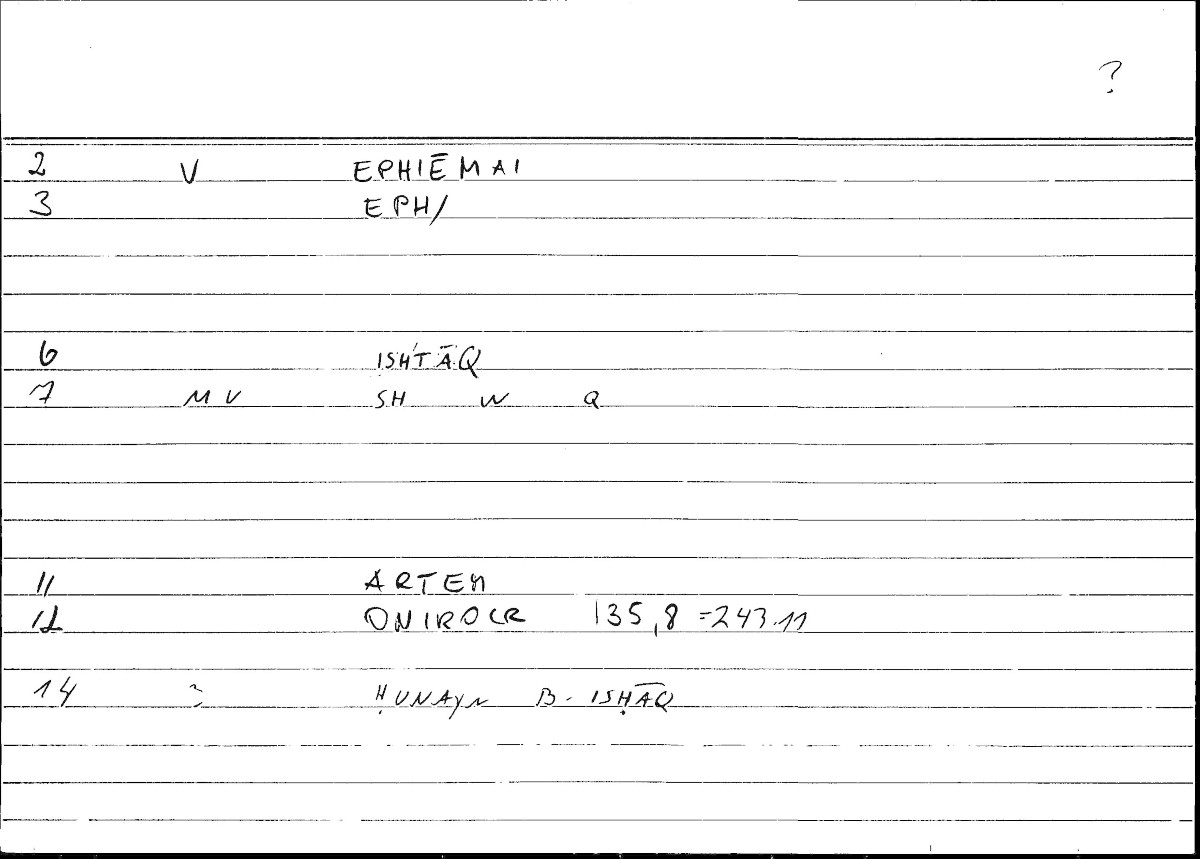 ?
2 V EPHIĒMAI
3 EPH/
6 ISHTĀQ
7 MV SH W Q
11 ARTEM
12 ONIROCR 135,8 =243.11
14 ḤUNAYN B. ISḤĀQ